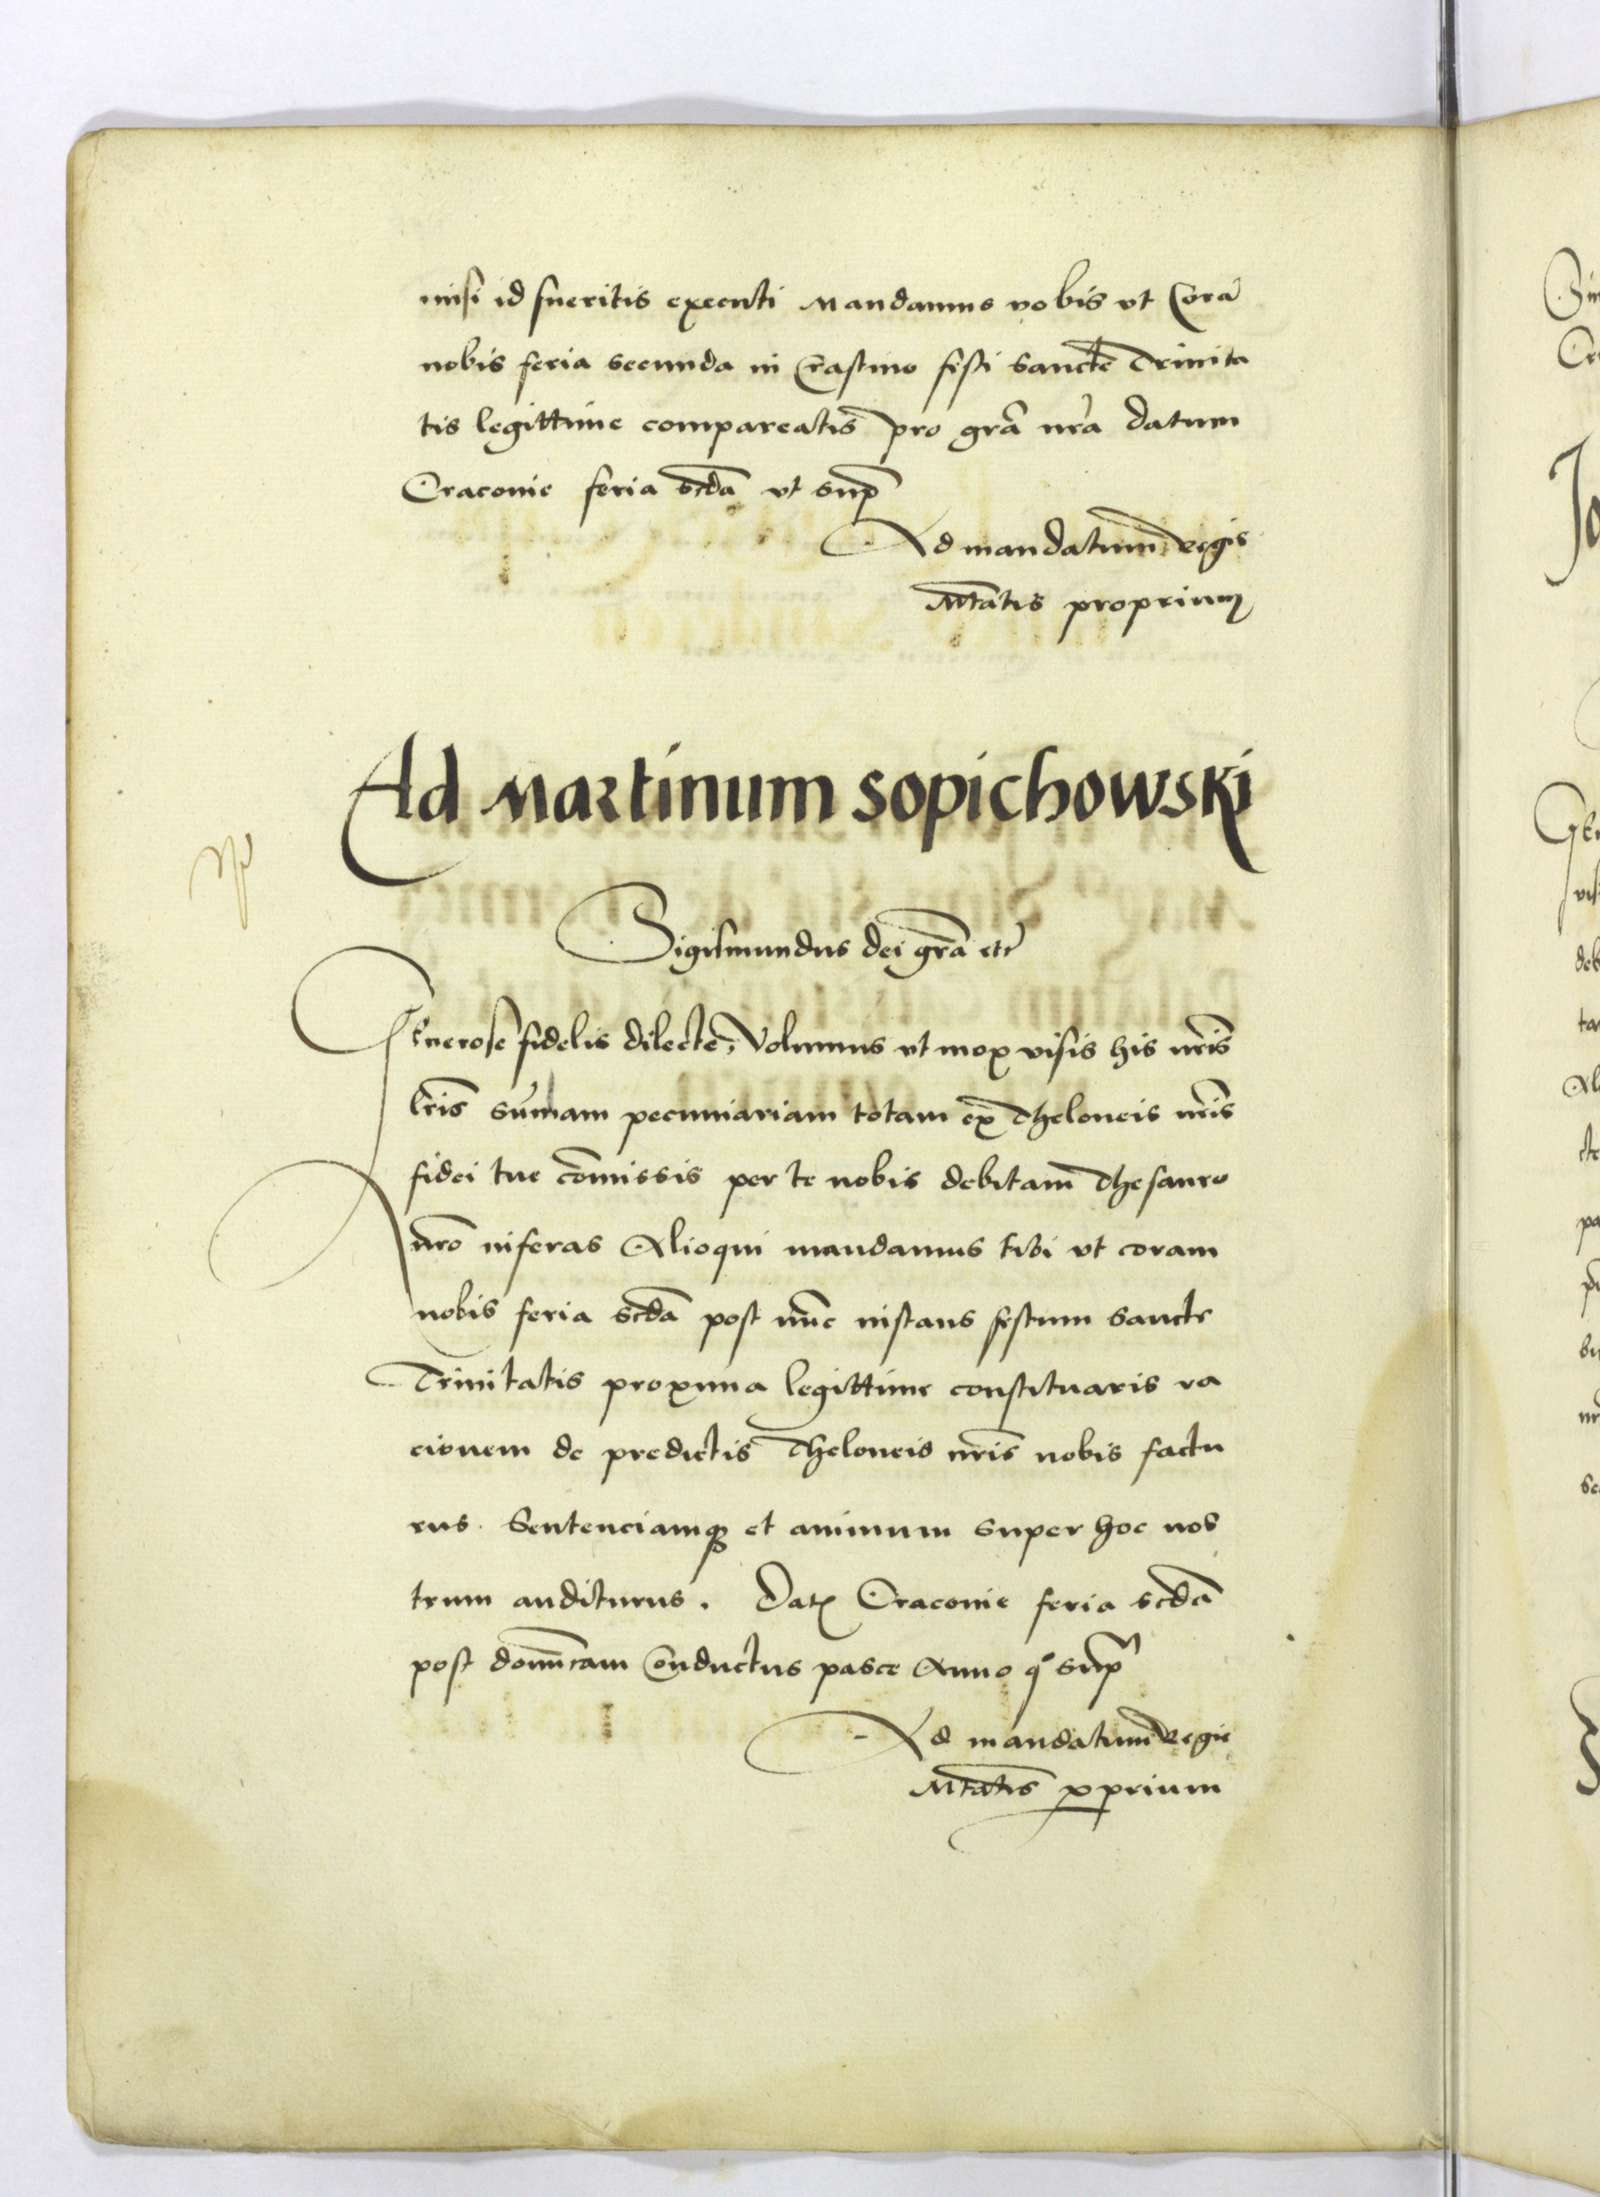 nisi id fueritis executi Mandamus vobis vt Corā
nobis feria secunda in Crastino festi Sancte Trinita
tis legittime compareatis pro grā nrā datum
Cracovie feria scdā vt supͬ
Ad mandatum Regie
Mtatis proprium
Ad Martinum Sopichowski
Sigismundus dei grā etc̄
Generose fidelis dilecte, Volumus vt mox visis his nrīs
lrīs summam pecuniariam totam ex Theloneis nrīs
fidei tue cōmissis per te nobis debitam Thesauro
nrō inferas Alioqui mandamus tibi vt coram
nobis feria scdā post nūc instans festum Sancte
Trinitatis proxima legittime constituaris ra
cionem de predictis Theloneis nrīs nobis factu
rus. Sentenciamqꝫ et animum super hoc nos
trum auditurus. Datꝫ Cracovie feria scdā
post domīcam Conductus pasce Anno qͦ supͬ
Ad mandatum Regie
Mtatis ꝓprium